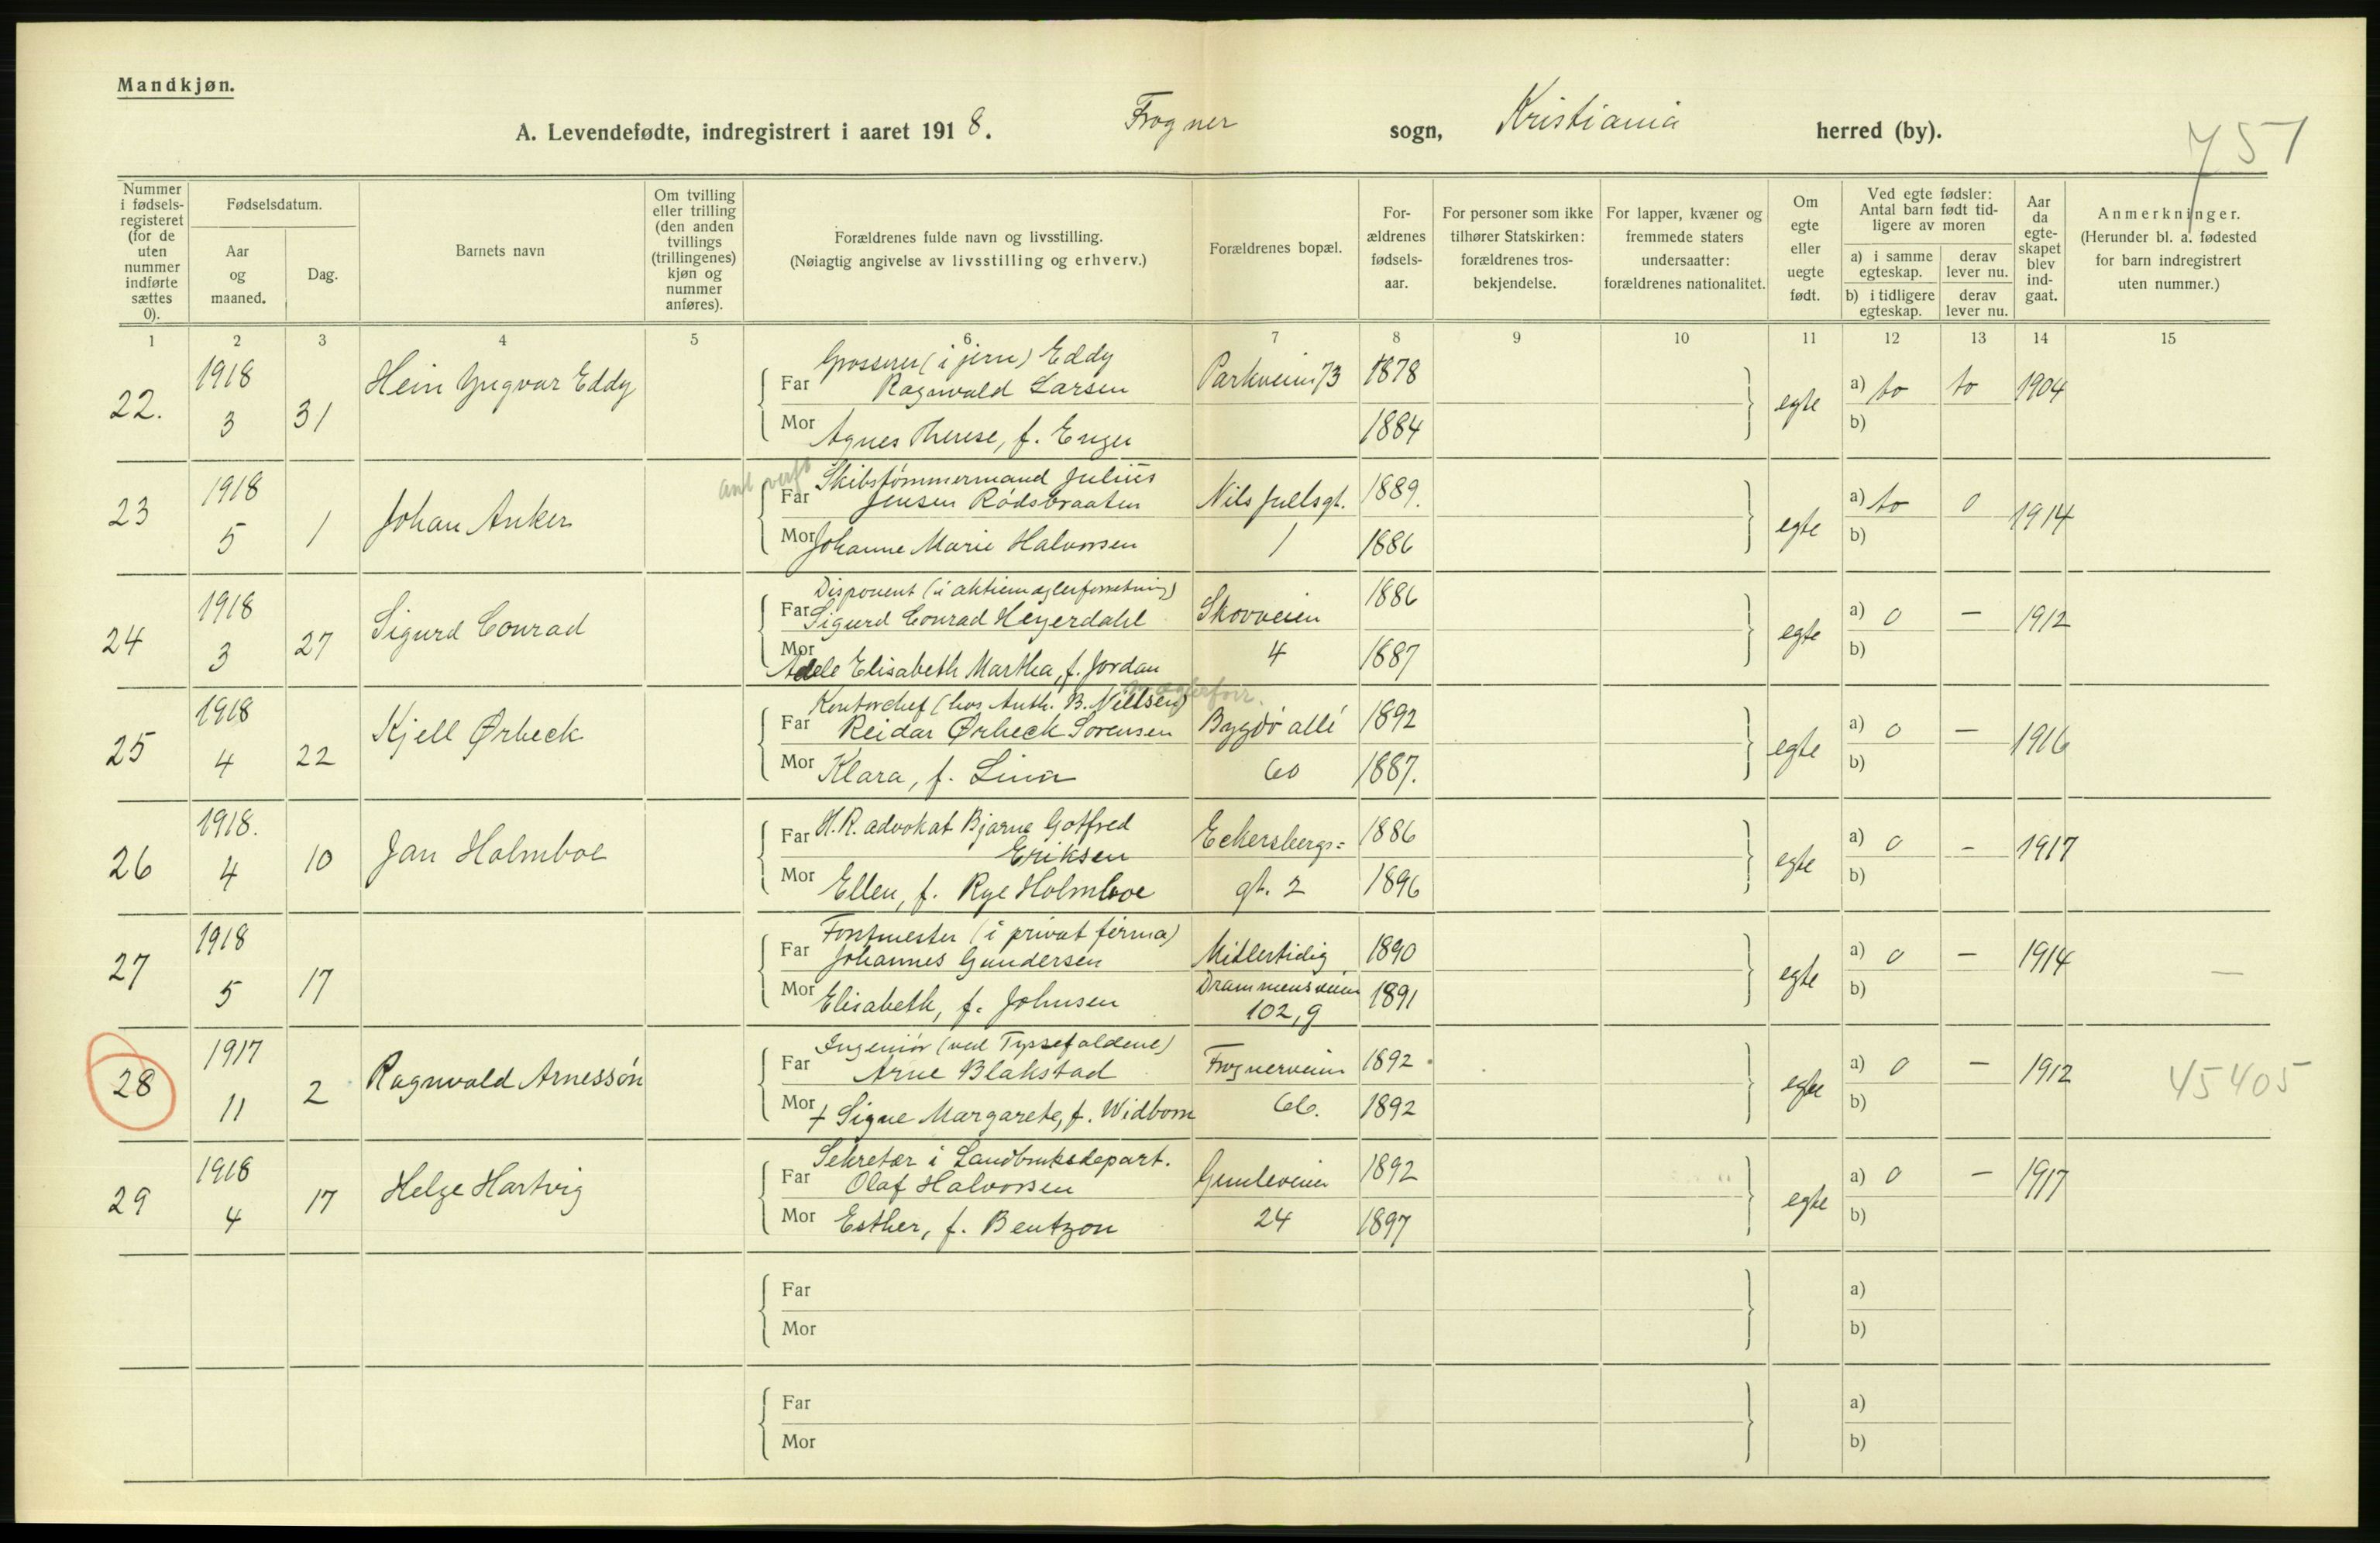 Mandkjøn.
A. Levendefødte, indregistrert i aaret 1918. Frogner sogn, Kristiania herred (by).
751
Nummer i fødsels-registeret (for de uten nummer indførte sættes 0).
Fødselsdatum.
Aar og maaned.
Dag.
Barnets navn
Om tvilling eller trilling (den anden tvillings (trillingenes) kjøn og nummer anføres).
Forældrenes fulde navn og livsstilling.
(Nøiagtig angivelse av livsstilling og erhverv.)
Forældrenes bopæl.
For-ældrenes fødsels-aar.
For personer som ikke tilhører Statskirken: forældrenes tros-bekjendelse.
For lapper, kvæner og fremmede staters undersaatter: forældrenes nationalitet.
Om egte eller uegte født.
Ved egte fødsler: Antal barn født tid-ligere av moren
a) i samme egteskap.
derav lever nu.
b) i tidligere egteskap.
derav lever nu.
Aar da egte-skapet blev ind-gaat.
Anmerkninger.
(Herunder bl. a. fødested for barn indregistrert uten nummer.)
1 2 3 4 5 6 7 8 9 10 11 12 13 14 15
22. 1918 3 31 Hein Yngvar Eddy
Grosserer (i jern) Eddy
Far Ragnvald Larsen Parkveien 73 1878
Mor Agnes Therese, f. Enger 1884
egte a) to to 1904
b)
23 1918 5 1 Johan Anker
Skibstømmermand Julius
Far Jensen Rødsbraaten Nils Juelsgt. 1889.
Mor Johanne Marie Halvorsen 1 1886
egte a) to 0 1914
b)
24 1918 3 27 Sigurd Conrad
Disponent (i aktiemæglerforretning)
Far Sigurd Conrad Heyerdahl Skovveien 1886
Mor Adele Elisabeth Martha, f. Jordan 4 1887
egte a) 0 — 1912
b)
25 1918 4 22 Kjell Ørbeck
Kontorchef (hos Anth. B. Nilsen)
Far Reidar Ørbeck Sorensen Bygdø allé 1892
Mor Klara, f. Linn 60 1887.
egte a) 0 — 1916
b)
26 1918. 4 10 Jan Holmboe
Far H.R. advokat Bjarne Gotfred
Eriksen Eckersbergs= 1886
Mor Ellen, f. Rye Holmboe gt. 2 1896
egte a) 0 - 1917
b)
27 1918 5 17
Forstmester (i privat firma)
Far Johannes Gundersen Midlertidig 1890
Mor Elisabeth, f. Johnsen Drammensveien 102, 9 1891
egte a) 0 — 1914 —
b)
28 1917 11 2 Ragnvald Arnessøn
Ingeniør (ved Tyssefaldene)
Far Arne Blakstad Frognerveien 1892
Mor + Signe Margarete, f. Widborn 66. 1892
egte a) 0 — 1912 45405
b)
29 1918 4 17 Helge Hartvig
Sekretær i Landbruksdepart.
Far Olaf Halvorsen Gimleveien 1892
Mor Esther, f. Bentzon 24 1897
egte a) 0 — 1917
b)
Far a)
Mor b)
Far a)
Mor b)